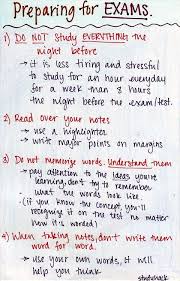 Preparing for EXAMS.
1) DO NOT study EVERYTHING the
night before
→ it is less tiring and stressful
to study for an hour everyday
for a week than 8 hours
the night before the exam/test.
2) Read over your notes
→ use a highlighter
→ write major points on margins
3) Do not memorize words. Understand them
→ pay attention to the ideas you're
learning, don't try to remember
what the words look like.
(if you know the concept, you'll
recognize it on the test no matter
how it's worded)
4) When taking notes, don't write them
word for word.
→ use your own words, it will
help you think